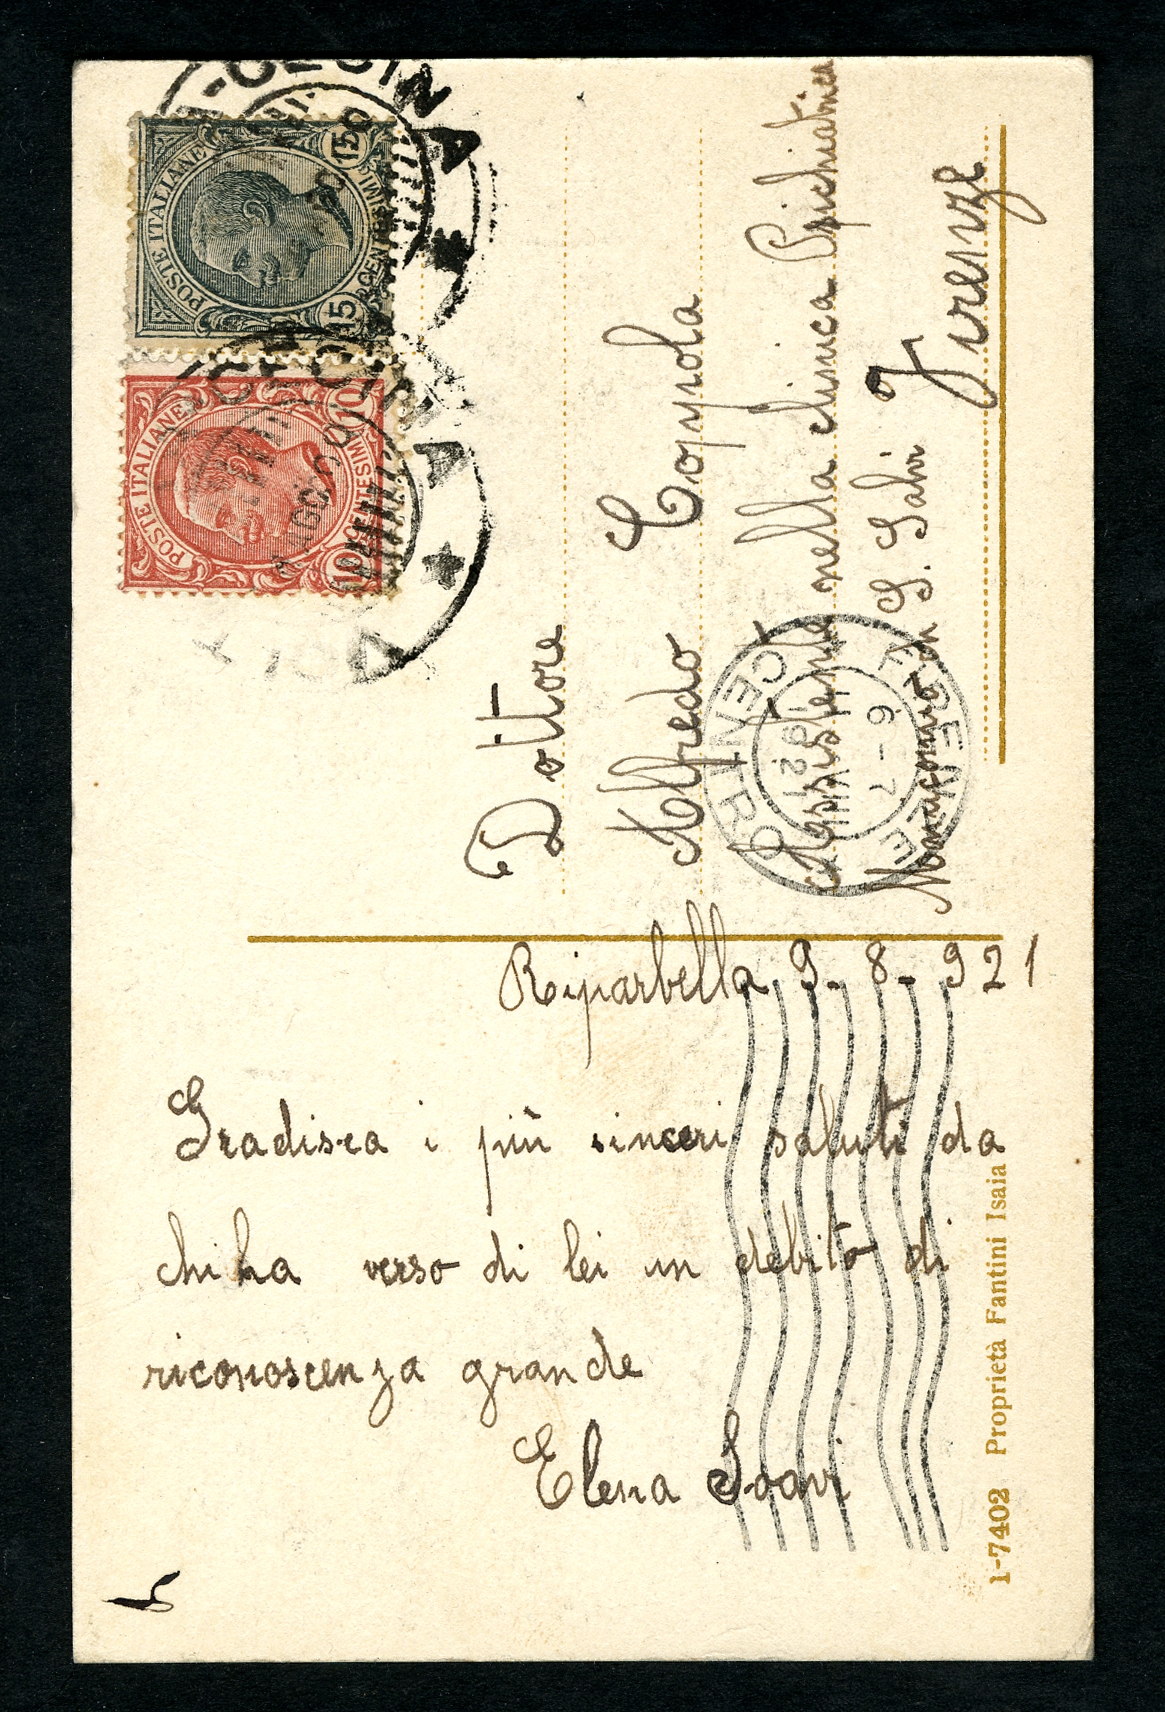 Riparbella 9. 8. 921
Gradisca i più sinceri saluti da
chi ha verso di lei un debito di
riconoscenza grande
Elena Soavi
1-7402 Proprietà Fantini Isaia
POSTE ITALIANE
15 CENTESIMI 15
POSTE ITALIANE
10 CENTESIMI 10
Dottore
Alfredo Coppola
Assistente nella clinica Psichiatrica
Manicomio in S. Salvi
Firenze
FIRENZE
6-7
1921
CENTRO